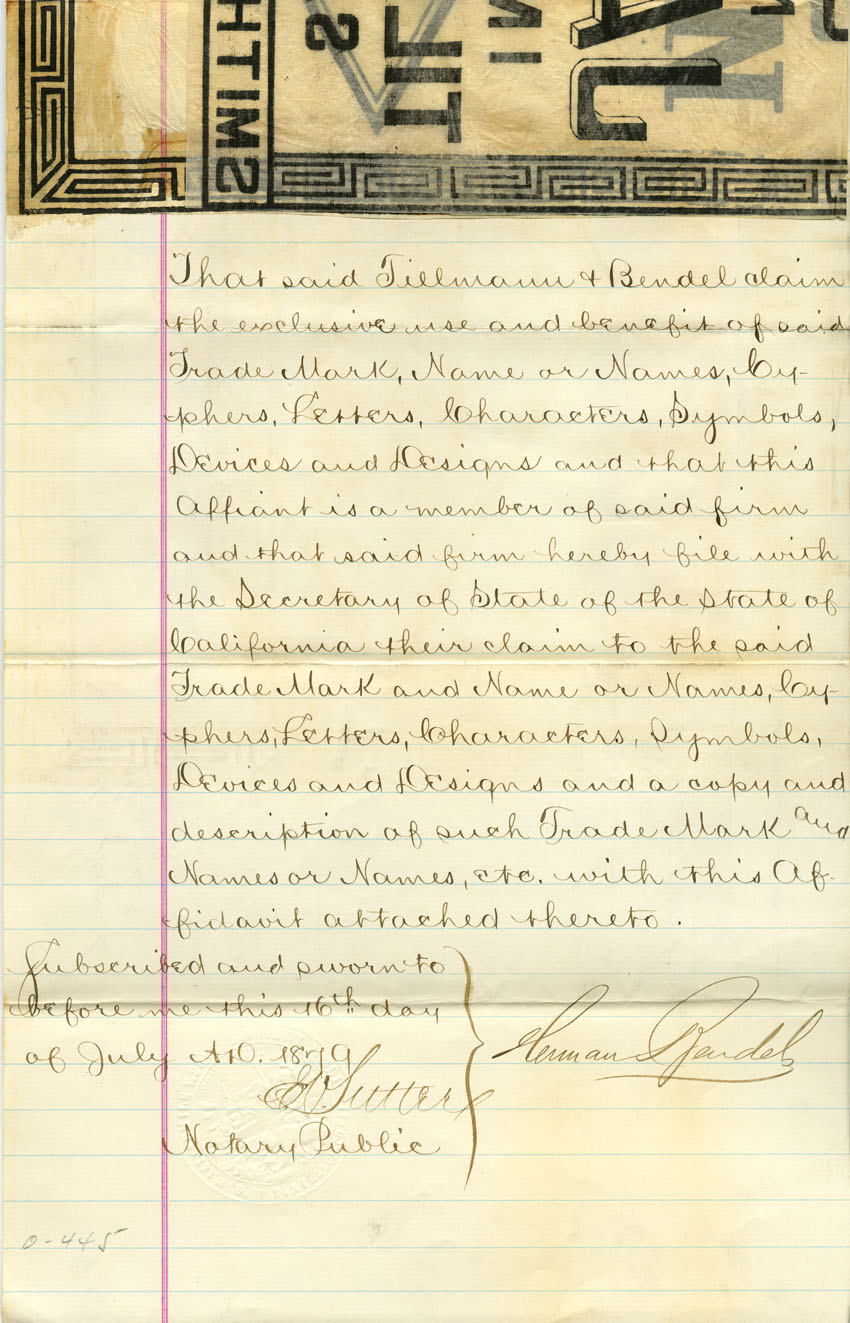 SMITH
S
That said Tillmann & Bendel claim
the exclusive use and benefit of said
Trade Mark, Name or Names, Cy-
phers, Letters, Characters, Symbols,
Devices and Designs and that this
Affiant is a member of said firm
and that said firm hereby file with
the Secretary of State of the State of
California their claim to the said
Trade Mark and Name or Names, Cy-
phers, Letters, Characters, Symbols,
Devices and Designs and a copy and
description of such Trade Mark and
Names or Names, etc. with this Af-
fidavit attached thereto.
Subscribed and sworn to
before me this 16th day
of July A.D. 1879
Sutter
Notary Public
Herman Bendel
0-445